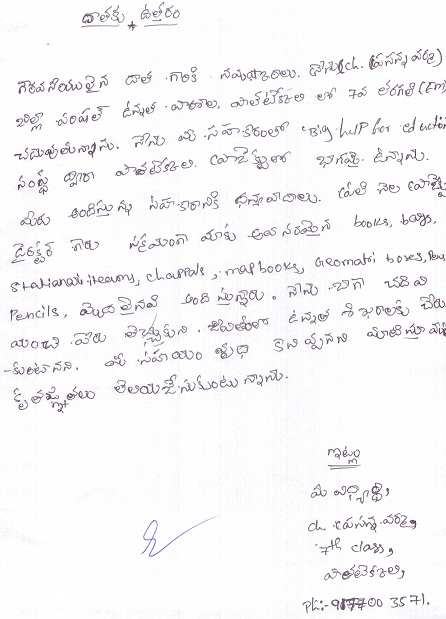 దాతకు ఉత్తరం
గౌరవనీయులైన దాత గారికి నమస్కారములు. నేను ch. ప్రసన్న వర్మ
జిల్లా పరిషత్ ఉన్నత పాఠశాల, పాతటెక్కలి లో 7వ తరగతి (Em)
చదువుతున్నాను. నేను మీ సహకారంతో "Big help for education
సంస్థ ద్వారా పాతటెక్కలి ప్రాజెక్టులో భాగమై ఉన్నాను.
మీరు అందిస్తున్న సహకారానికి ధన్యవాదాలు. ప్రతి నెల ప్రాజెక్టు
డైరెక్టర్ గారు సక్రమంగా మాకు అవసరమైన books, bags,
stationary items, chappals, map books, Geomatri boxes, Pens
Pencils, మొదలైనవి అందిస్తున్నారు. నేను బాగా చదివి
మంచి పేరు తెచ్చుకుని జీవితంలో ఉన్నత శిఖరాలకు చేరు
-కుంటానని. మీ సహాయం వృధా కానివ్వనని మాటిస్తూ
కృతజ్ఞతలు తెలియజేసుకుంటున్నాను.
ఇట్లు
మీ విద్యార్థి,
ch. ప్రసన్న వర్మ,
7th class,
పాతటెక్కలి,